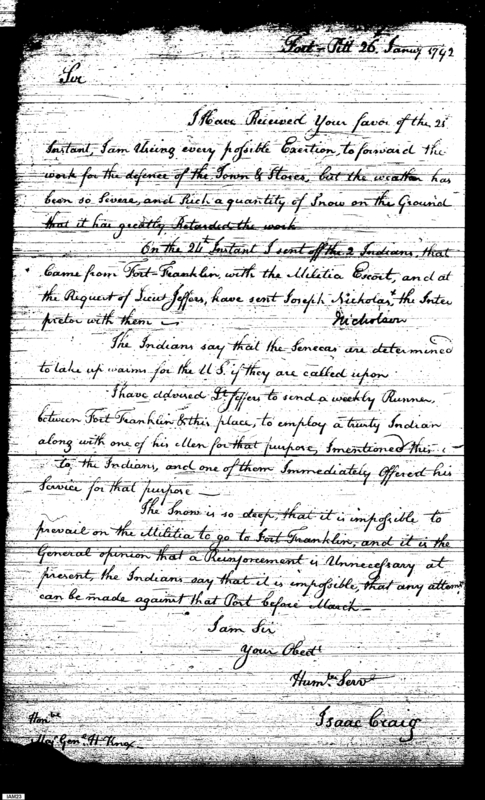 Fort-Pitt 26 Janury 1792
Sir
I Have Received Your favor of the 21
Instant, I am Using every possible Exertion, to forward the
work for the defence of the Town & Stores, but the weather has
been so Severe, and Such a quantity of Snow on the Ground
that it has greatly Retarded the work
On the 24t Instant I sent off the 2 Indians, that
Came from Fort Franklin, with the Militia Escort, and at
the Request of Lieut Jeffers, have sent Joseph Nicholas, the Inter
preter with them — Nicholson
The Indians say that the Senecas are determined
to take up warms for the U S. if they are called upon
I have advised Lt Jeffers to send a weekly Runner,
between Fort Franklin & this place, to employ a trusty Indian
along with one of his Men for that purpose, I mentioned this
to the Indians, and one of them Immediately Offered his
Service for that purpose —
The Snow is so deep, that it is impossible to
prevail on the Militia to go to Fort Franklin, and it is the
General opinion that a Reinforcement is Unnecessary at
present, the Indians say that it is impossible, that any attemt
can be made against that Post before March —
I am Sir
Your Obedt
Humble Servt
Isaac Craig
Honble
Maj Genl H. Knox
IAM23